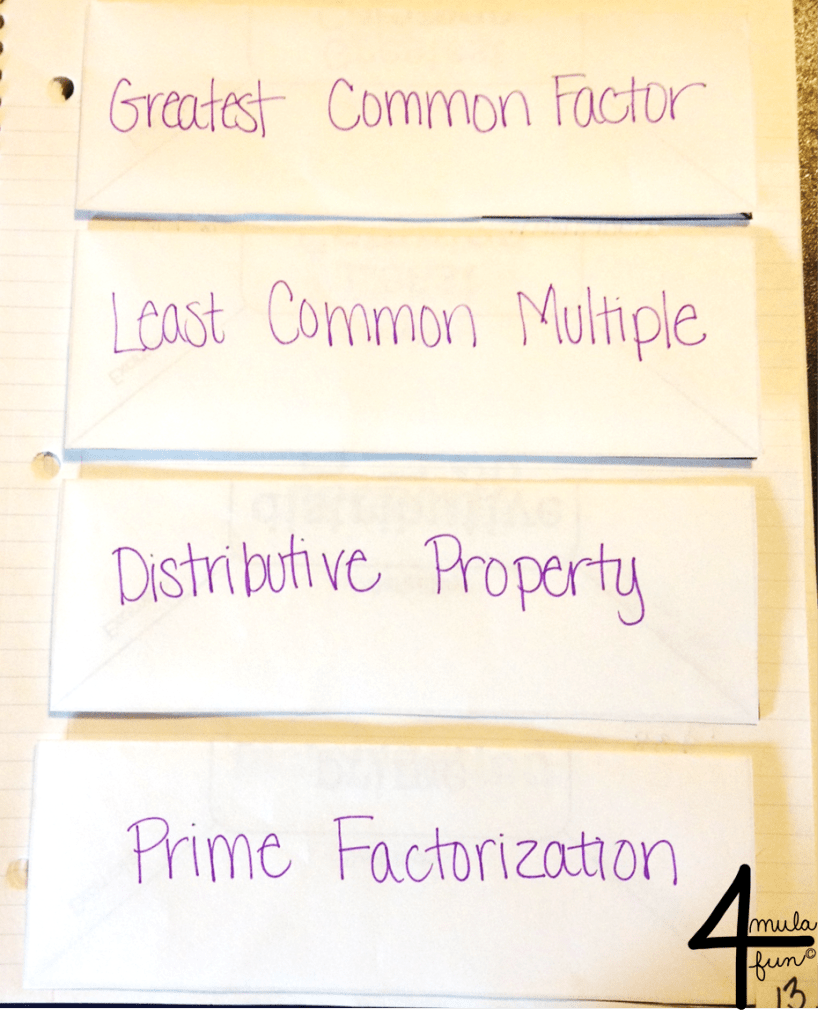 Greatest Common Factor
Least Common Multiple
distributive
Distributive Property
Prime Factorization
4 mula
fun©
13